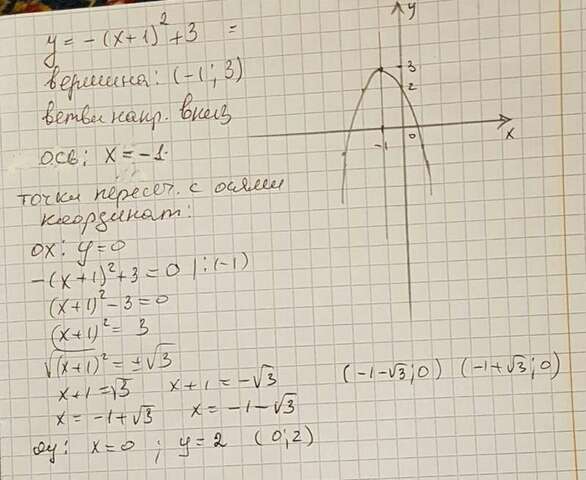 y = -(x+1)² + 3 =
вершина: (-1; 3)
ветви напр. вниз
ось: x = -1
точки пересеч. с осями
координат:
ох: y=0
-(x+1)²+3 = 0 | :(-1)
(x+1)² - 3 = 0
(x+1)² = 3
√(x+1)² = ±√3
x+1 = √3 x+1 = -√3
x = -1+√3 x = -1-√3
(-1-√3; 0) (-1+√3; 0)
оу: x=0 ; y=2 (0; 2)
y
3
2
-1
0
x